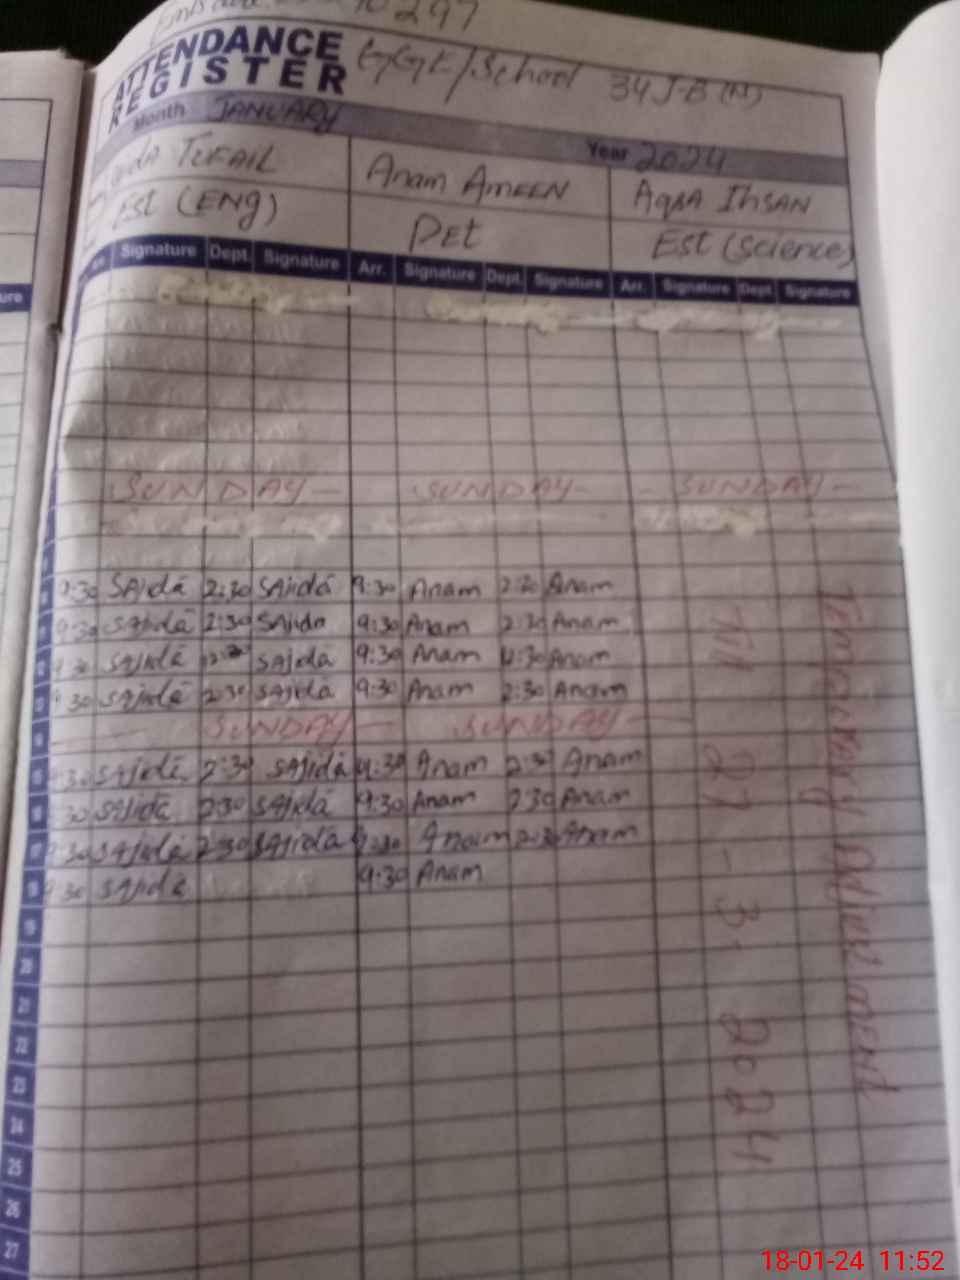 297
ATTENDANCE
REGISTER
School 34 J-B (N)
Month JANUARY Year 2024
TUFAIL Anam AMEEN AQSA IHSAN
Est (ENG) PET Est (Science)
Signature Dept. Signature Arr. Signature Dept. Signature Arr. Signature Dept. Signature
ure
SUNDAY SUNDAY - SUNDAY -
9:30 SAjida 2:30 SAjida 9:30 Anam 2:30 Anam
9:30 SAjida 2:30 SAjida 9:30 Anam 2:30 Anam
SAjida SAjida 9:30 Anam Anam
:30 SAjida 2:30 SAjida 9:30 Anam 2:30 Anam
SUNDAY SUNDAY
15 :30 SAjida 2:30 SAjida Anam 2:30 Anam
16 :30 SAjida 2:30 SAjida 9:30 Anam 2:30 Anam
17 9:30 SAjida 2:30 SAjida Anam 2:30 Anam
18 9:30 SAjida 9:30 Anam
19
20
21
22
23
24
25
26
27
Temporary Adjustment
Till 27-3-2024
18-01-24 11:52